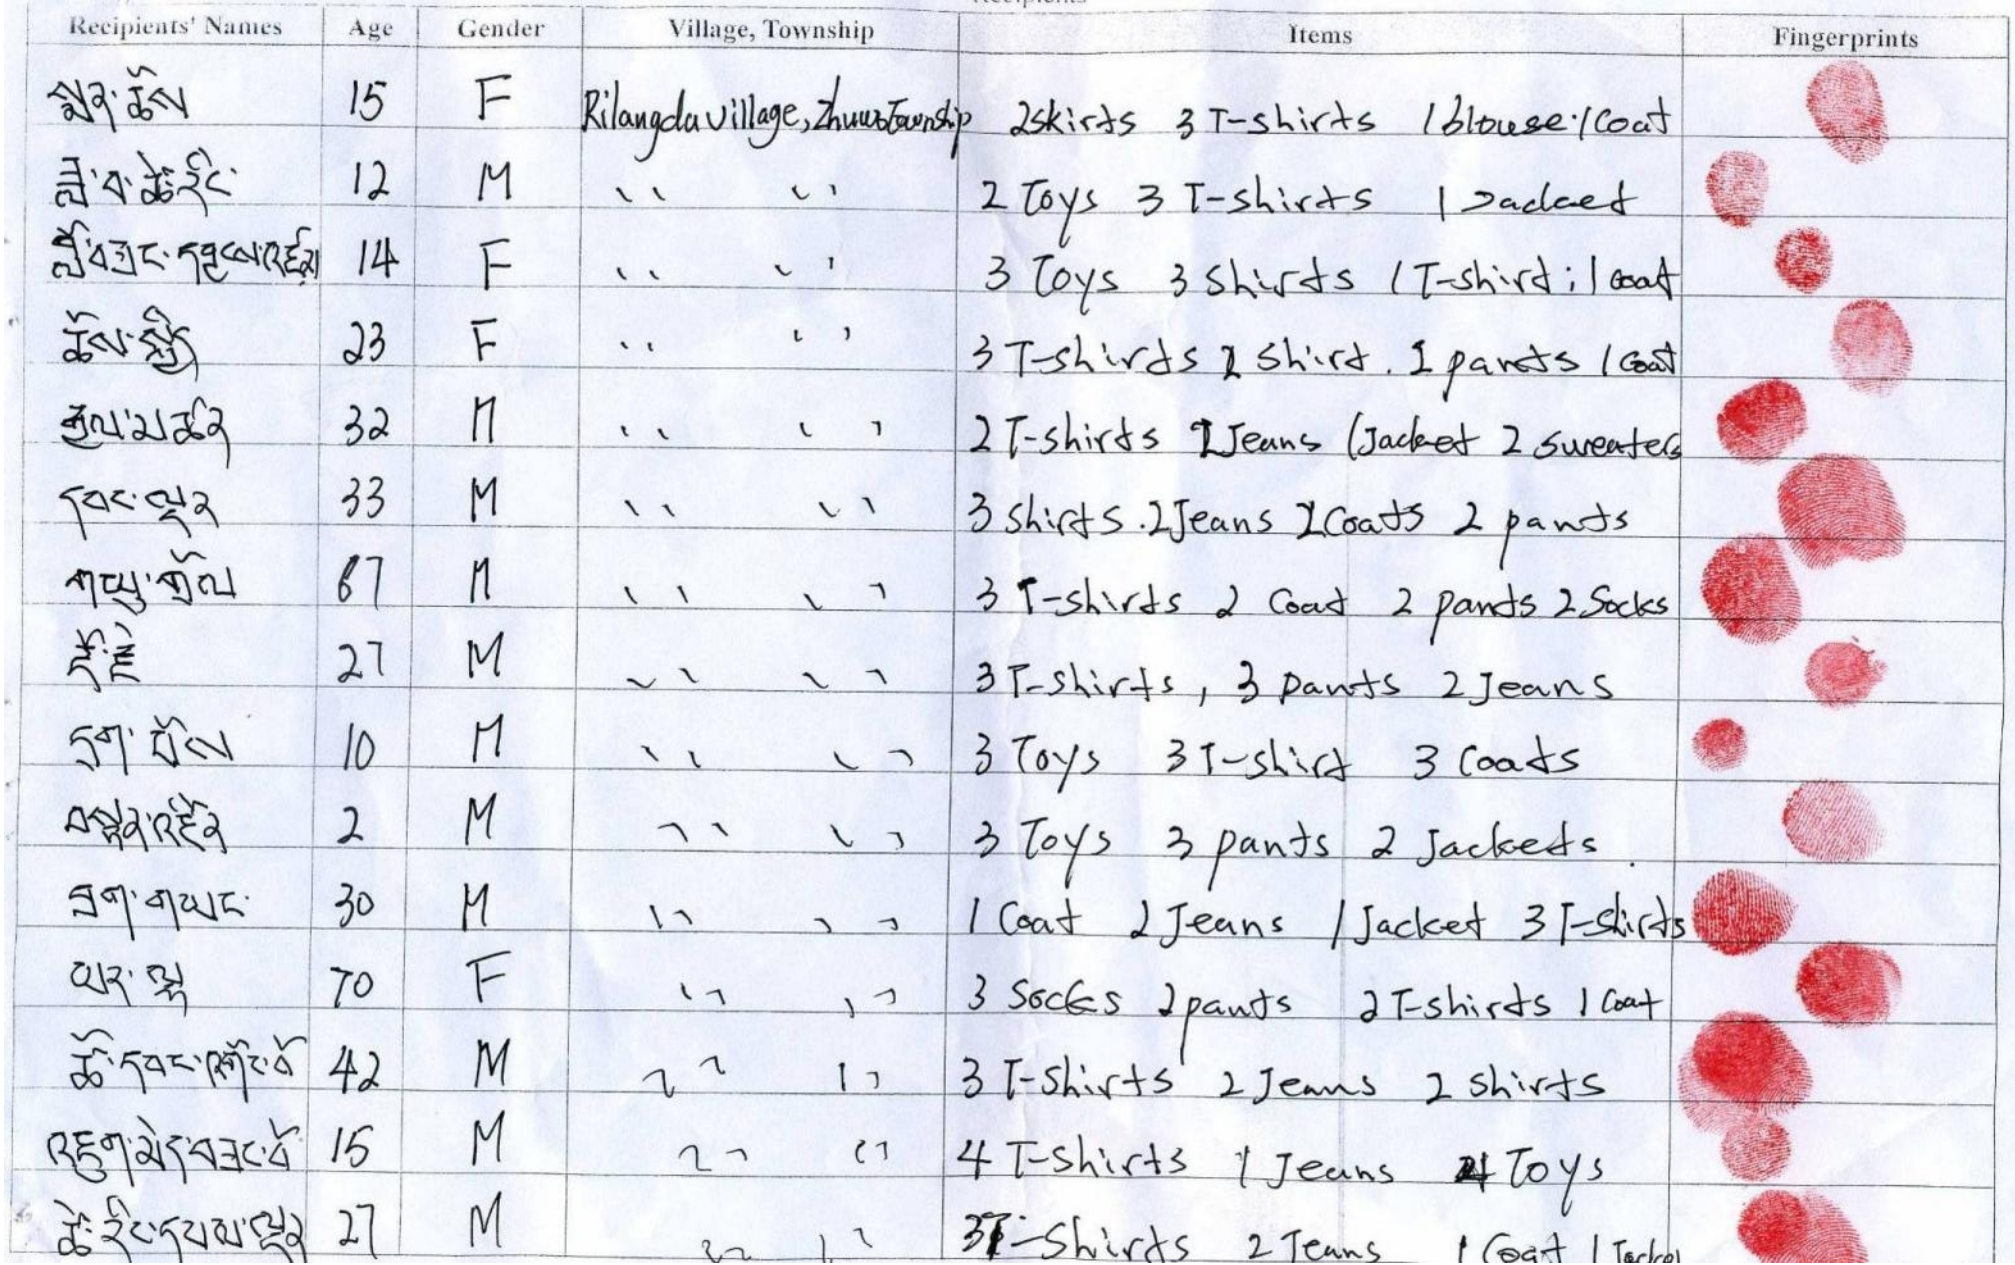 Recipients' Names Age Gender Village, Township Items Fingerprints
སྨན་ཚོས 15 F Rilangda village, Zhuwo Township 2 skirts 3 T-shirts 1 blouse. 1 Coat
ཟླ་བ་ཚེ་རིང་ 12 M " " 2 Toys 3 T-shirts 1
14 F " " 3 Toys 3 Shirts 1 T-shirt ; 1 coat
23 F " " 3 T-shirts 1 shirt. 1 pants 1 Coat
རྒྱལ་མཚན 32 M " " 2 T-shirts 1 Jeans 1 Jacket 2 sweaters
དབང་ལྡན 33 M " " 3 shirts. 2 Jeans 2 Coats 2 pants
67 M " " 3 T-shirts 2 Coat 2 pants 2 Socks
27 M " " 3 T-shirts, 3 pants 2 Jeans
10 M " " 3 Toys 3 T-shirt 3 Coats
བསྟན་འཛིན 2 M " " 3 Toys 3 pants 2 Jackets.
གཡང་ 30 M " " 1 Coat 2 Jeans 1 Jacket 3 T-shirts
70 F " " 3 Socks 2 pants 2 T-shirts 1 Coat
42 M " " 3 T-Shirts 2 Jeans 2 shirts
འཇིག་མེད་བཟང་པོ 15 M " " 4 T-shirts 1 Jeans 4 Toys
ཚེ་རིང་དཔལ་ལྡན 27 M " " 3 T-Shirts 2 Jeans 1 Coat 1 Jacket